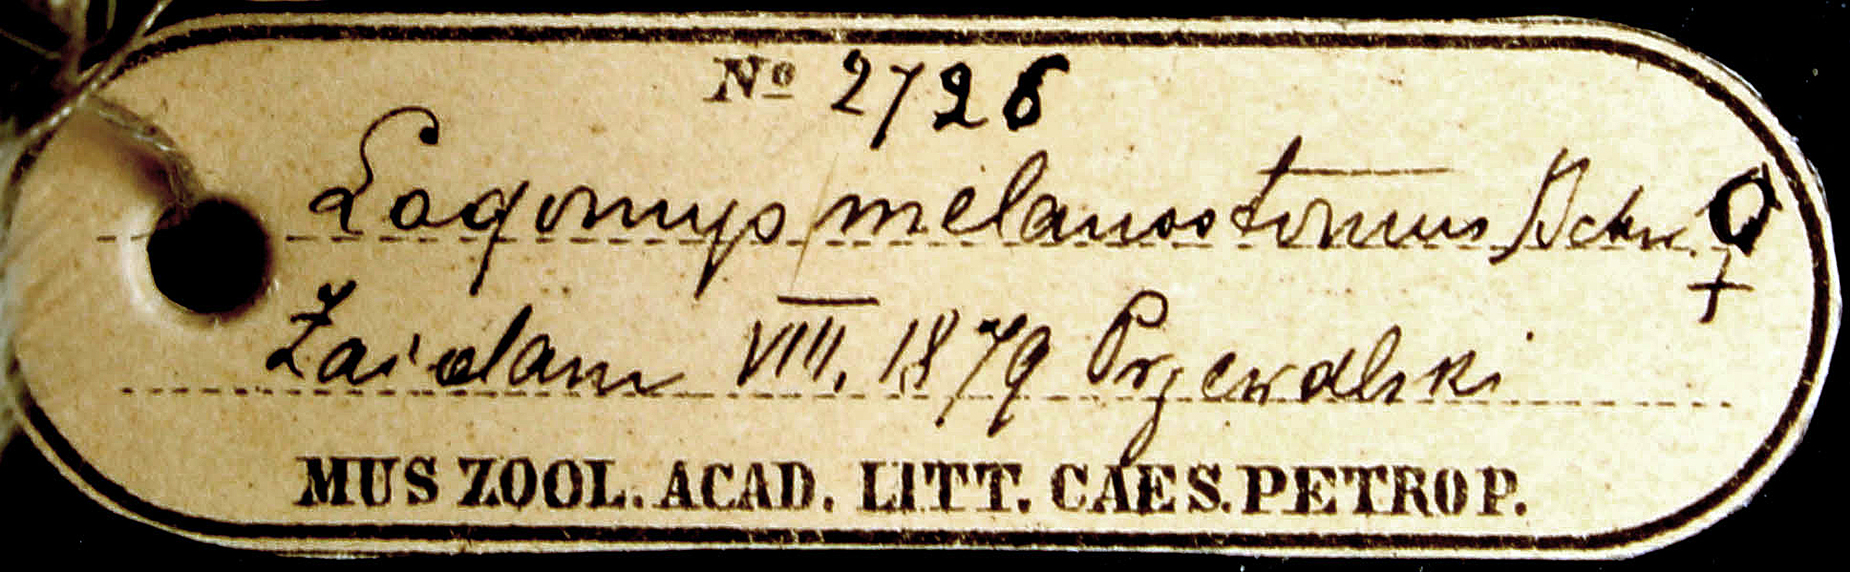 Nº 2726
Lagomys melanostomus Bchn. ♀
Zaidam VIII. 1879 Przewalski
MUS ZOOL. ACAD. LITT. CAES. PETROP.